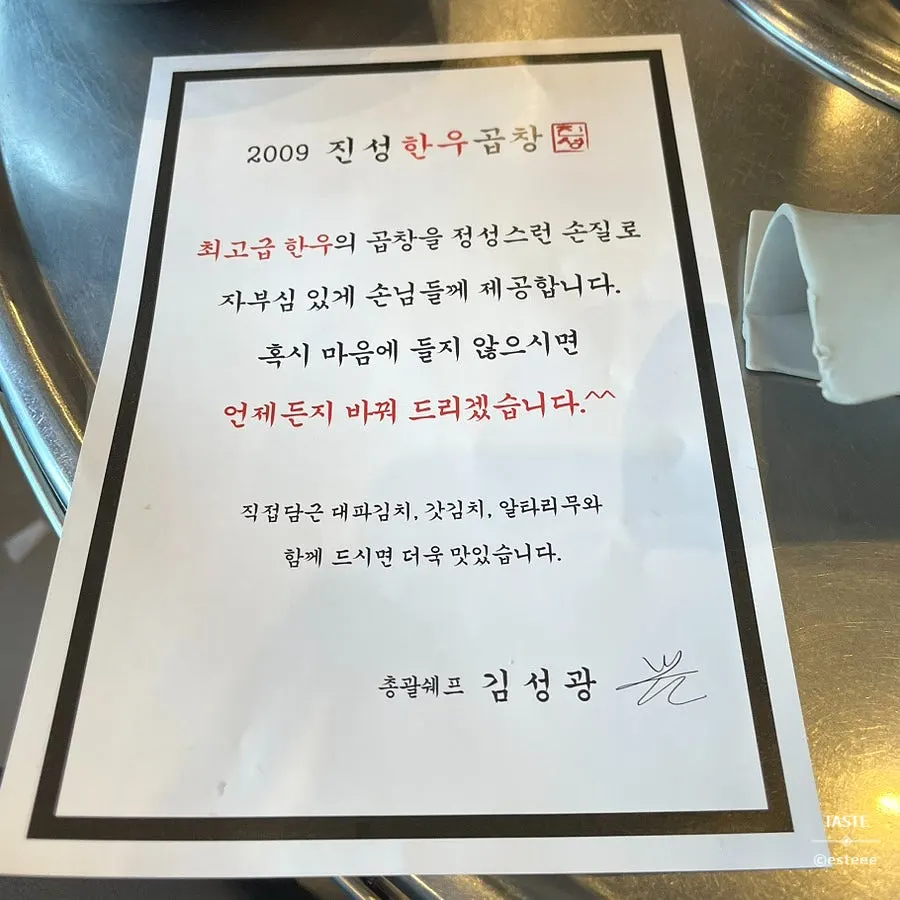 2009 진성한우곱창 진성
최고급 한우의 곱창을 정성스런 손질로
자부심 있게 손님들께 제공합니다.
혹시 마음에 들지 않으시면
언제든지 바꿔 드리겠습니다.^^
직접담근 대파김치, 갓김치, 알타리무와
함께 드시면 더욱 맛있습니다.
총괄쉐프 김성광
TASTE
©esteee